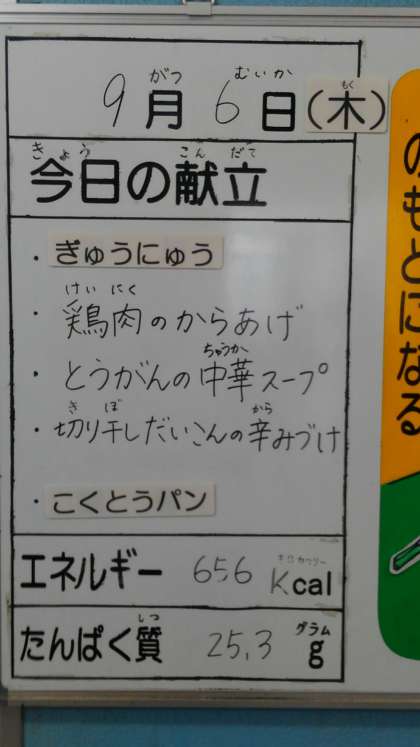 がつ むいか もく
9月6日(木)
きょう こんだて
今日の献立
・ぎゅうにゅう
けいにく
・鶏肉のからあげ
ちゅうか
・とうがんの中華スープ
き ぼ から
・切り干しだいこんの辛みづけ
・こくとうパン
キロカロリー
エネルギー 656 Kcal
しつ グラム
たんぱく質 25.3 g
のもとになる